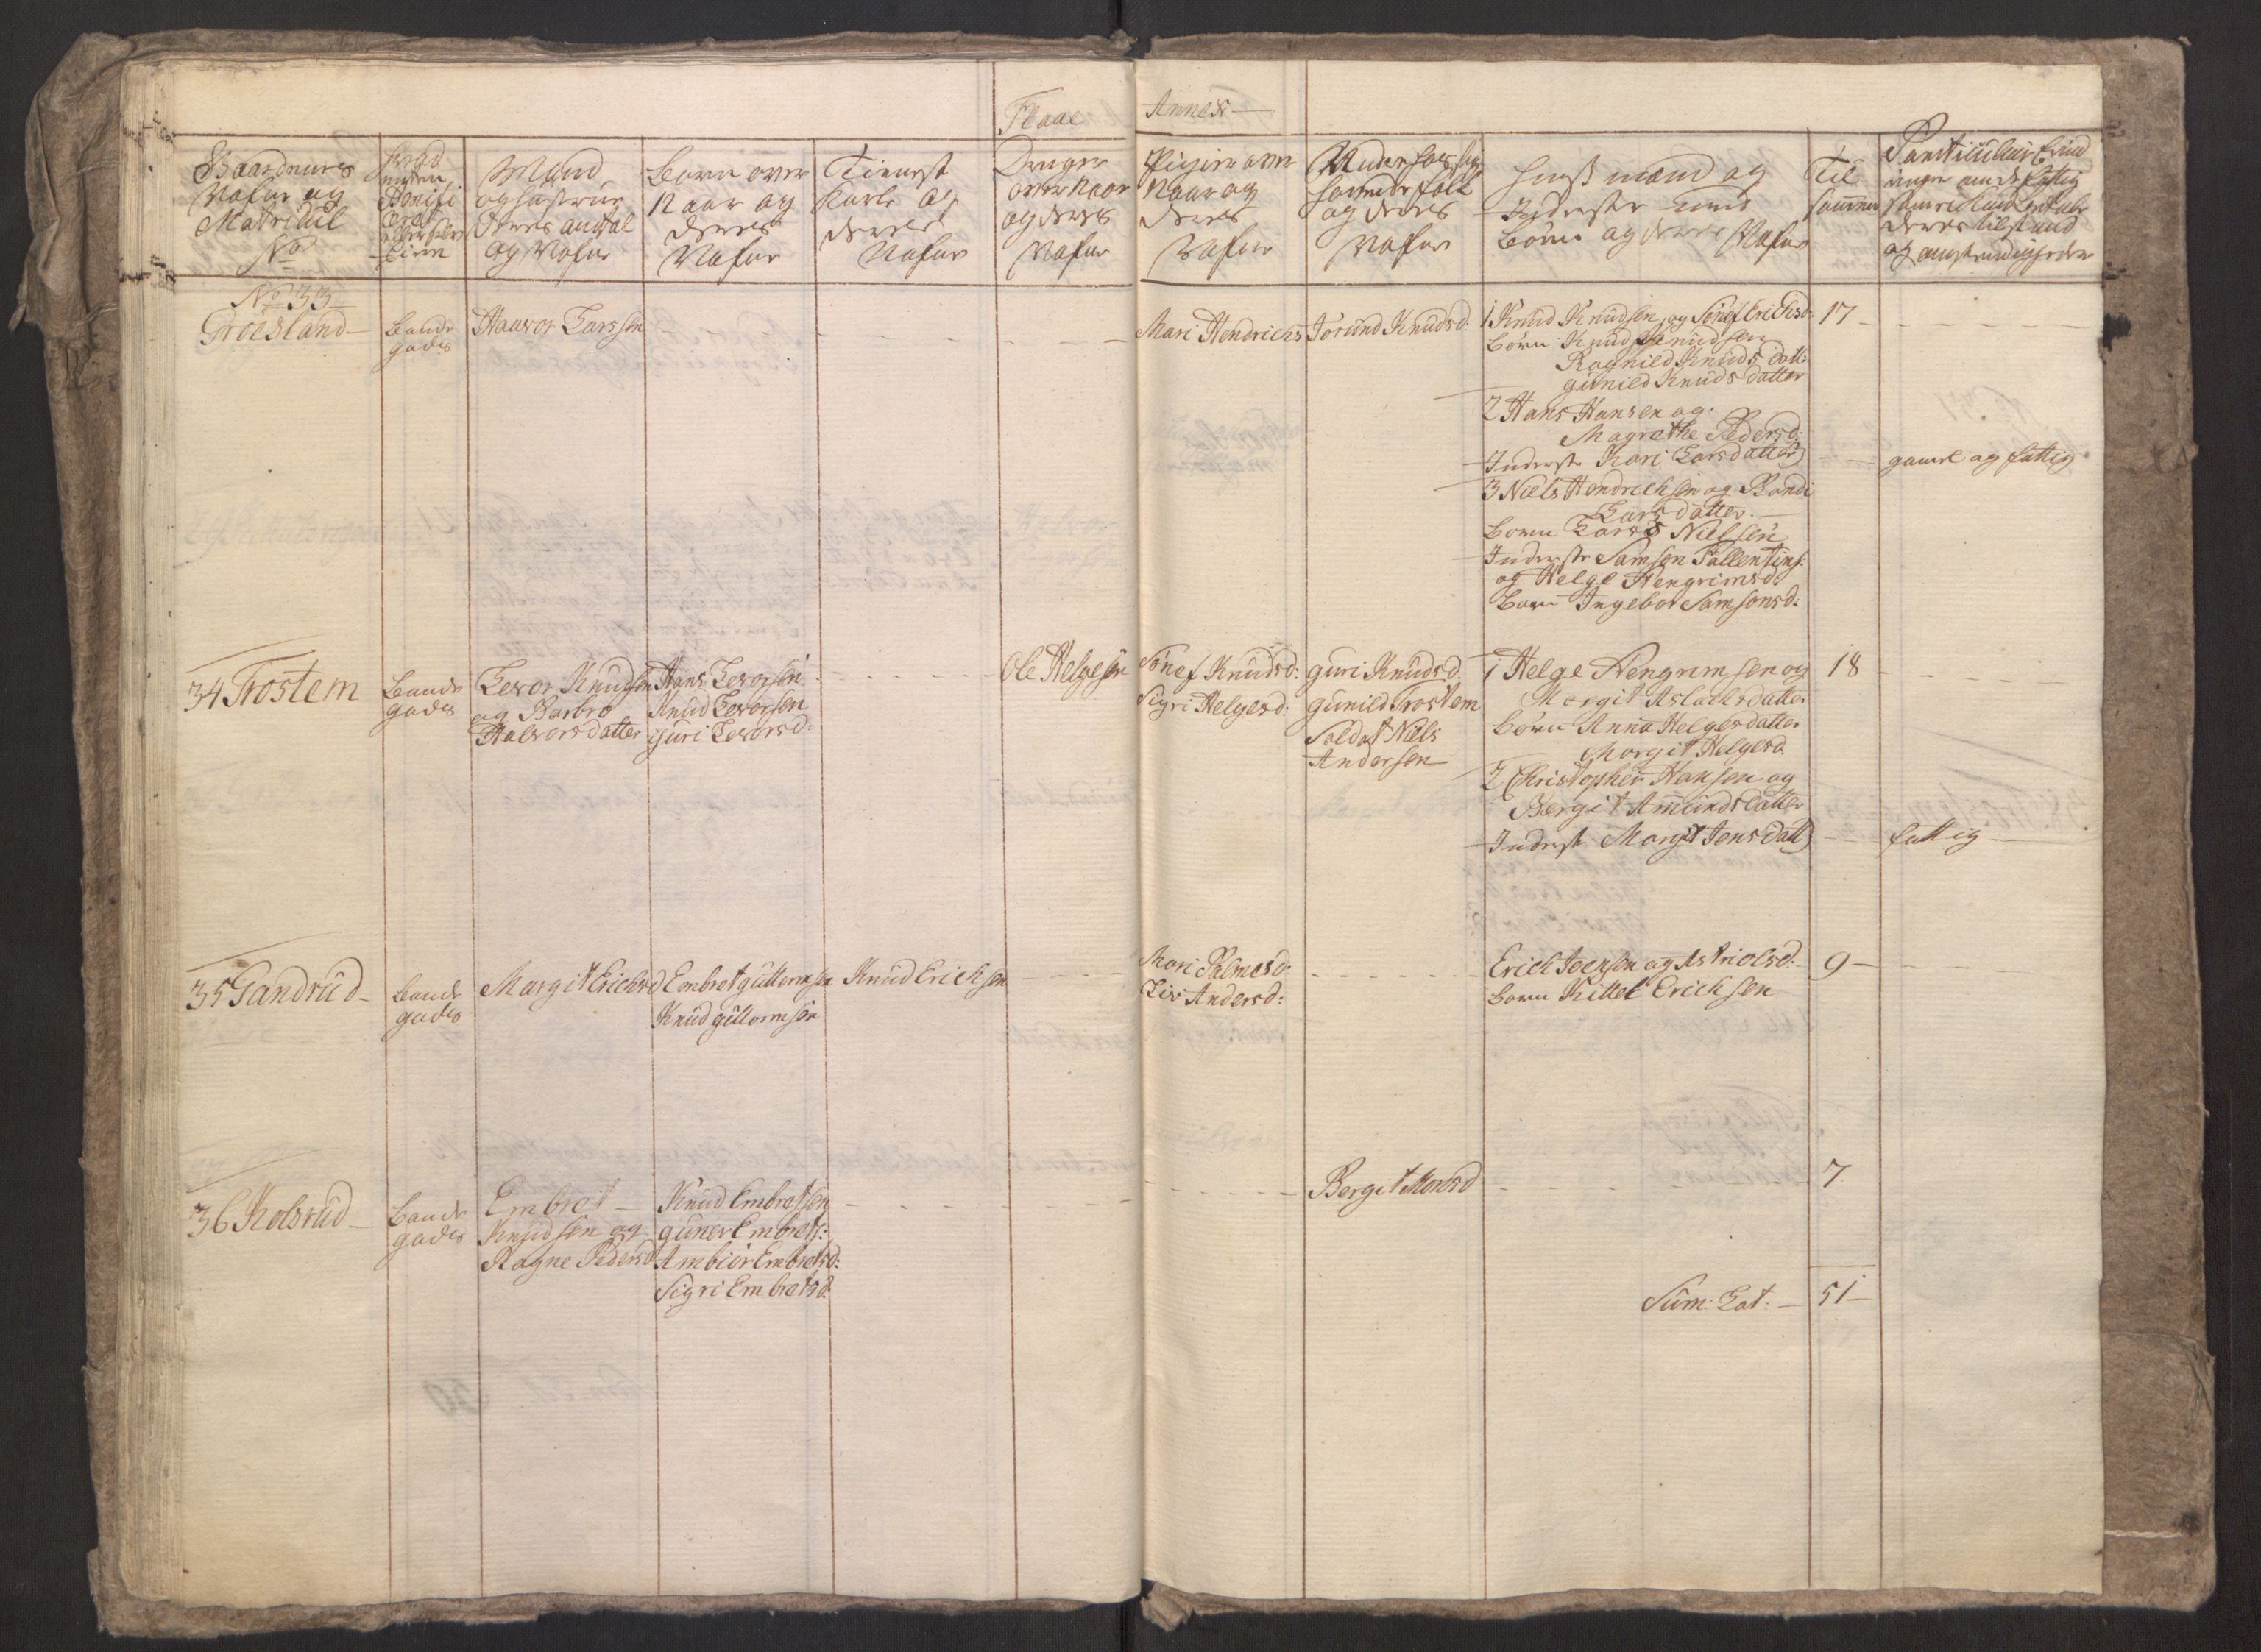 Flaae Annex
Gaardenes Nafne og Matricul No
Mand og hustrue deres antal og Nafne
Børn over 12 aar og deres Nafne
Tieneste Karle og deres Nafne
Drenge over 12 aar og deres Nafne
Pigger over 12 aar og deres Nafne
og deres Nafne
Huusmænd og Inderster med Børn og deres Nafne
Til sammen
No 33
Groesland
Bonde gods
Halvor Larssen
Mari Hendrichs
Jorund Knudsd:
1 Knud Knudsen og Sönef Erichsd:
Børn Knud Knudsen
Ragnild Knuds datt:
Gunild Knuds datter
2 Hans Hansen og
Magrethe Pedersd:
Inderste Kari Larsdatter
3 Niels Hendrichsen og Randi
Lars datter
Børn Lars Nielsen
Inderste Samson Tallentins:
og Helge Hengrimsd:
Barn Ingebor Samsonsd:
17
gamel og fattig
34 Trostem
Bonde gods
Levor Knudsen
og Barbro
Halvorsdatter
Hans Levorsen
Knud Levorsen
Guri Levorsd:
Ole Helgesen
Sönef Knudsd:
Sigri Helgesd:
Guri Knudsd.
Gunild Trostem
Soldat Niels
Andersen
1 Helge Hengrimsen og
Margit Aslachsdatter
Børn Anna Helgesdatter
Margit Helgesd.
2 Christopher Hansen og
Bergit Amundsdatter
Inderste Margit Jonsdatt
18
fattig
35 Sandrud
Bonde gods
Margit Erichsd
Embret Guttormsen
Knud Guttormsen
Knud Erichsen
Mari Palmesd:
Liv Andersd:
Erich Joensen og Astri Olsd:
Barn Kittel Erichsen
9
36 Kolsrud
Bonde gods
Embret
Knudsen og
Ragne Pedersd
Knud Embretsen
Guner Embrets:
Ambiør Embretsd:
Sigri Embretsd.
Bergit Monsd
7
Sum: Lat: 51